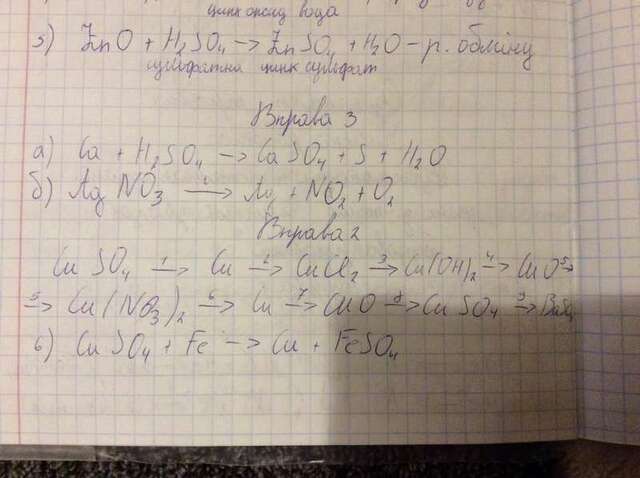 цинк оксид вода
5) ZnO + H₂SO₄ → ZnSO₄ + H₂O - р. обміну
цинк сульфат
Вправа 3
а) Ca + H₂SO₄ → CaSO₄ + S + H₂O
б) AgNO₃ → Ag + NO₂ + O₂
Вправа 2
CuSO₄ 1→ Cu 2→ CuCl₂ 3→ Cu(OH)₂ 4→ CuO 5→
5→ Cu(NO₃)₂ 6→ Cu 7→ CuO 8→ CuSO₄ 9→
6) CuSO₄ + Fe → Cu + FeSO₄